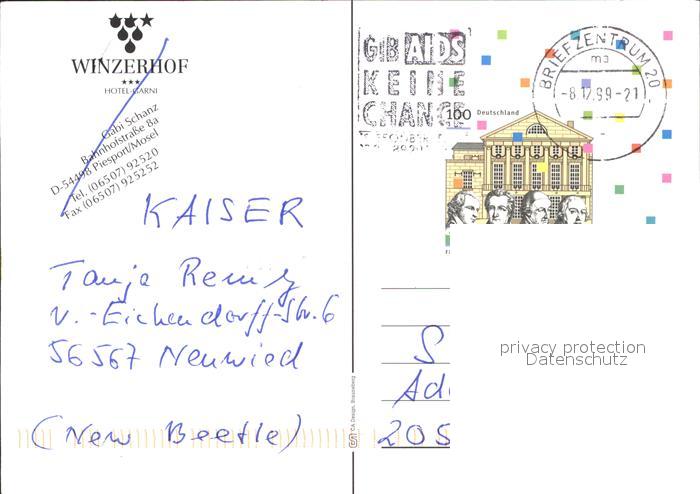 WINZERHOF
HOTEL-GARNI
Gabi Schanz
Bahnhofstraße 8a
D-54498 Piesport/Mosel
Tel. (06507) 92520
Fax (06507) 925252
KAISER
Tanja
v.-Eichendorff-Str. 6
56567 Neuwied
(New Beetle)
CA Design, Brandenberg
GIB AIDS
KEINE
CHANCE
BRIEFZENTRUM 20
ma
-8.12.99-21
100 Deutschland
S
Ad
205
privacy protection
Datenschutz